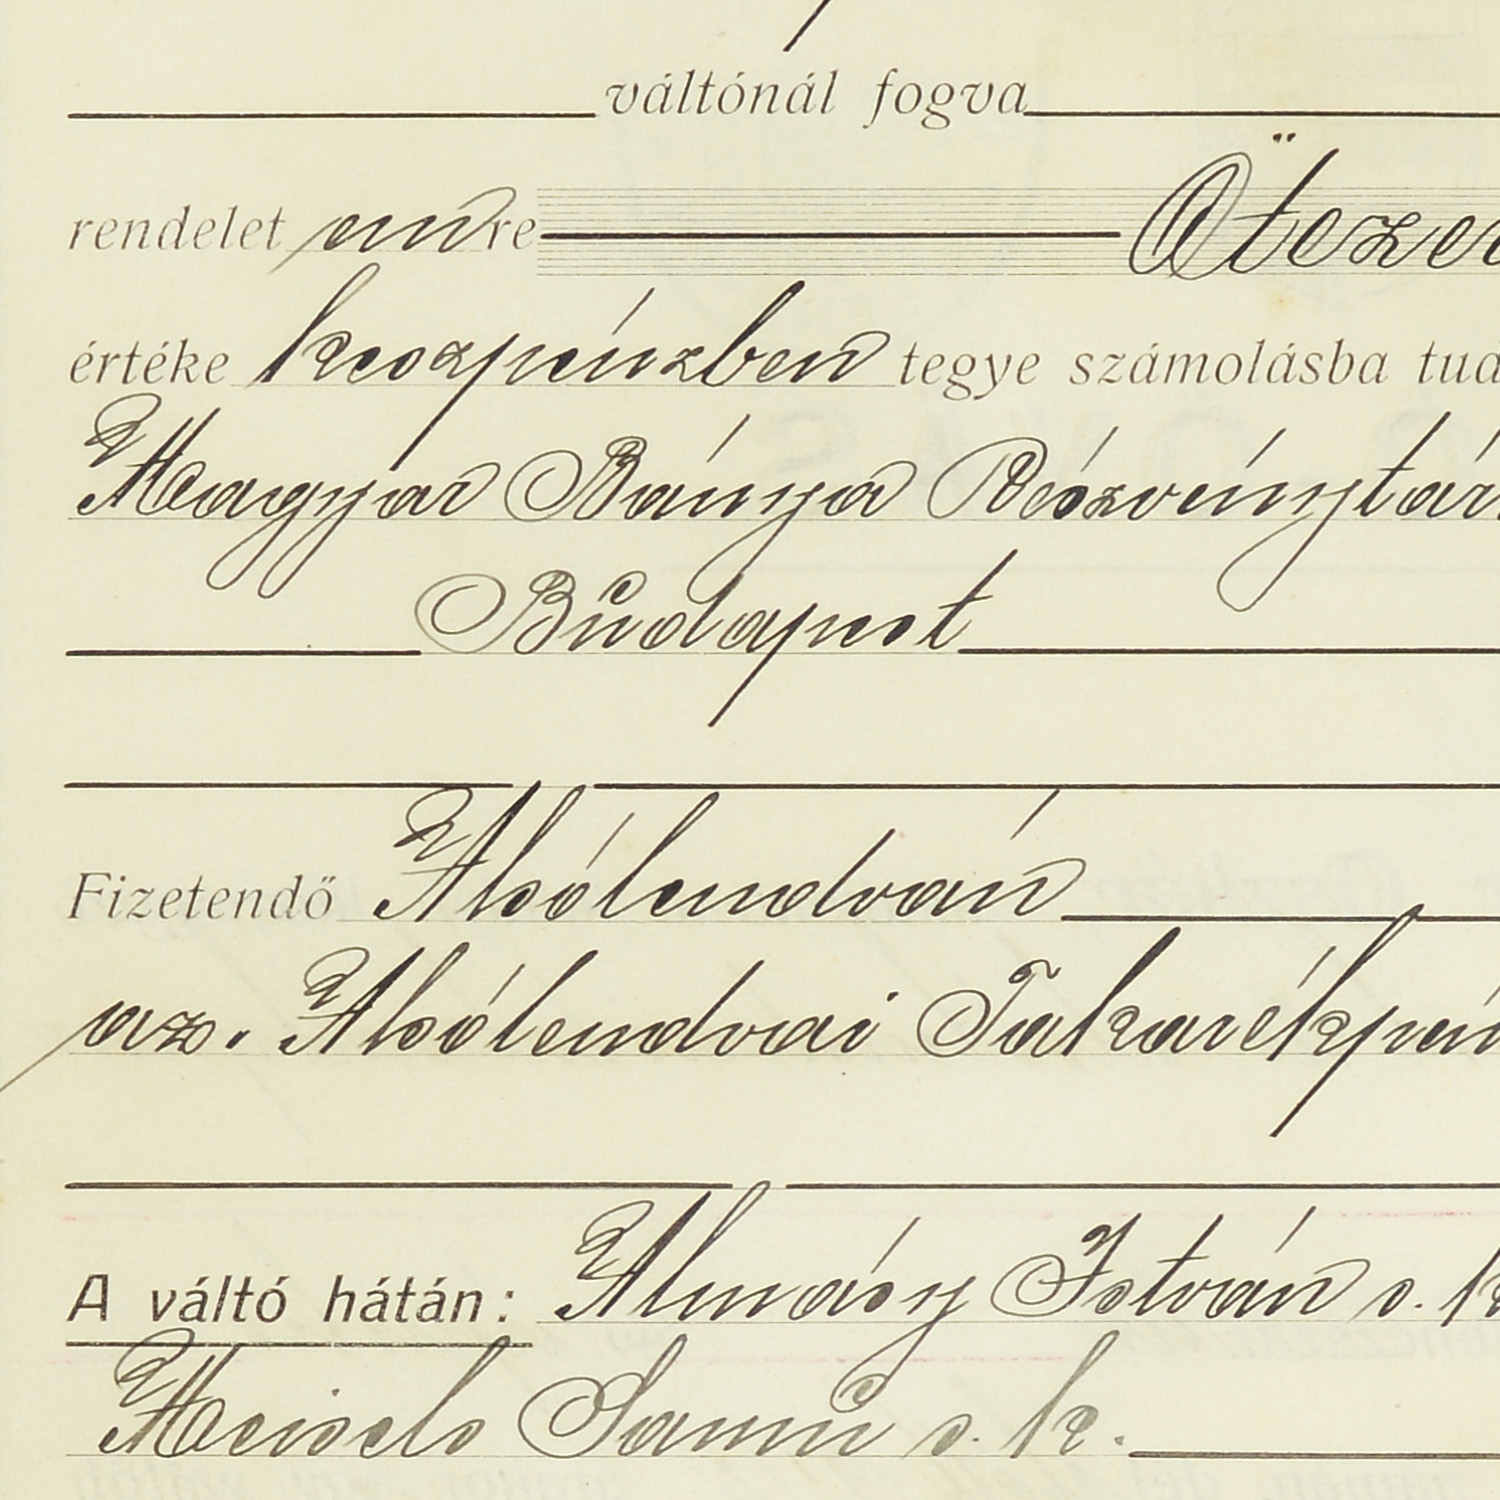 váltónál fogva
rendelet en re Ötezer
értéke készpénzben tegye számolásba tud
Magyar Bánya Részvénytár
Budapest
Fizetendő Alsólendván
az. Alsólendvai Takarékpén
A váltó hátán: Almásy István s. k
Samu s. k.